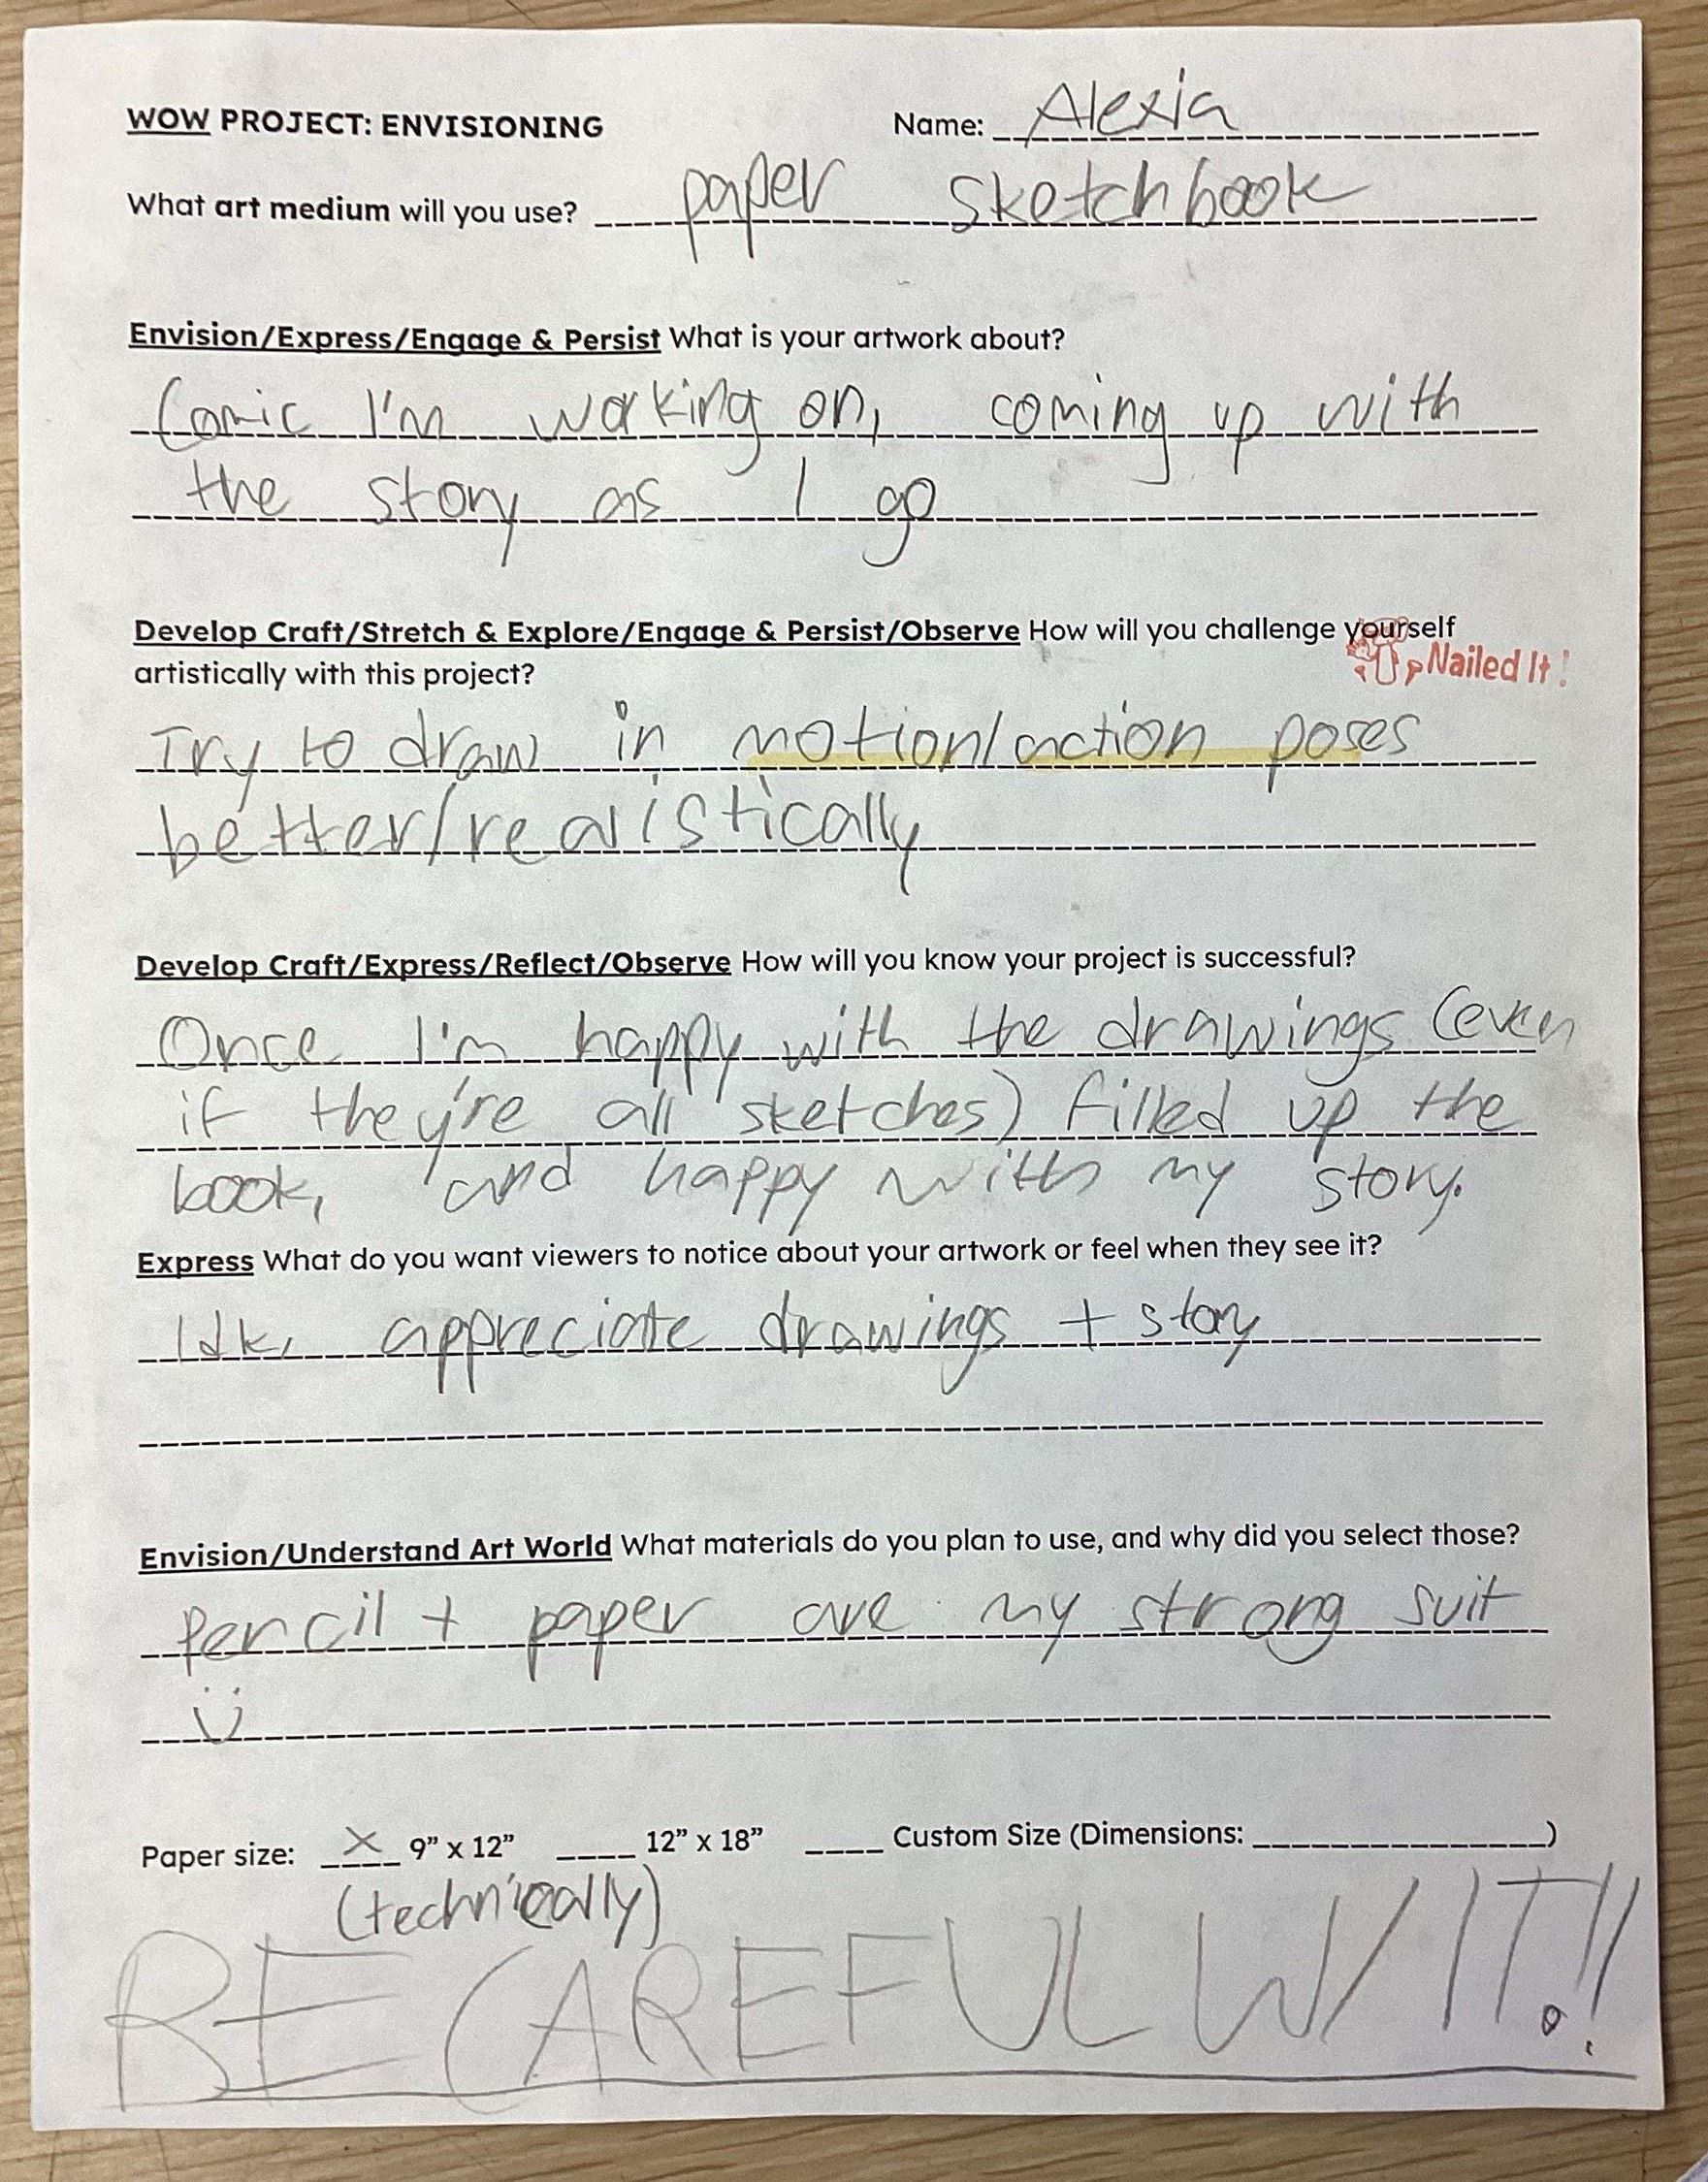 WOW PROJECT: ENVISIONING Name: Alexia
What art medium will you use? paper sketchbook
Envision/Express/Engage & Persist What is your artwork about?
Comic I'm working on, coming up with
the story as I go
Develop Craft/Stretch & Explore/Engage & Persist/Observe How will you challenge yourself
artistically with this project?
Nailed It!
Try to draw in motion/action poses
better/realistically
Develop Craft/Express/Reflect/Observe How will you know your project is successful?
Once I'm happy with the drawings (even
if they're all sketches) filled up the
book, and happy with my story.
Express What do you want viewers to notice about your artwork or feel when they see it?
Idk, appreciate drawings + story
Envision/Understand Art World What materials do you plan to use, and why did you select those?
Pencil + paper are my strong suit
Ü
Paper size: X 9” x 12” ____ 12” x 18” ____ Custom Size (Dimensions: _______________)
(technically)
BE CAREFUL W/ IT!!